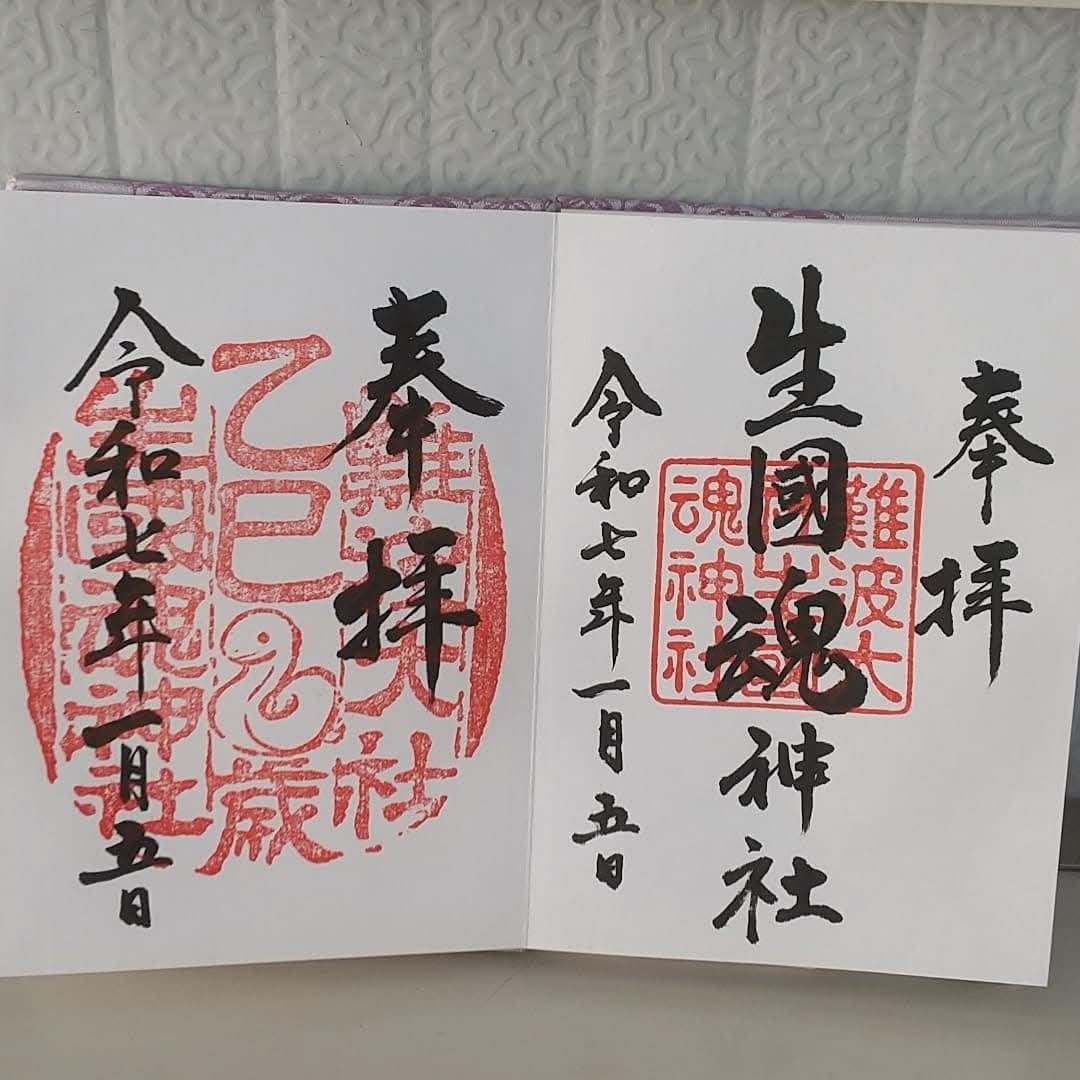 奉拝
生國魂神社
難波大社
生國魂神社
令和七年一月五日
奉拝
難波大社
乙巳
歳
生國魂神社
令和七年一月五日